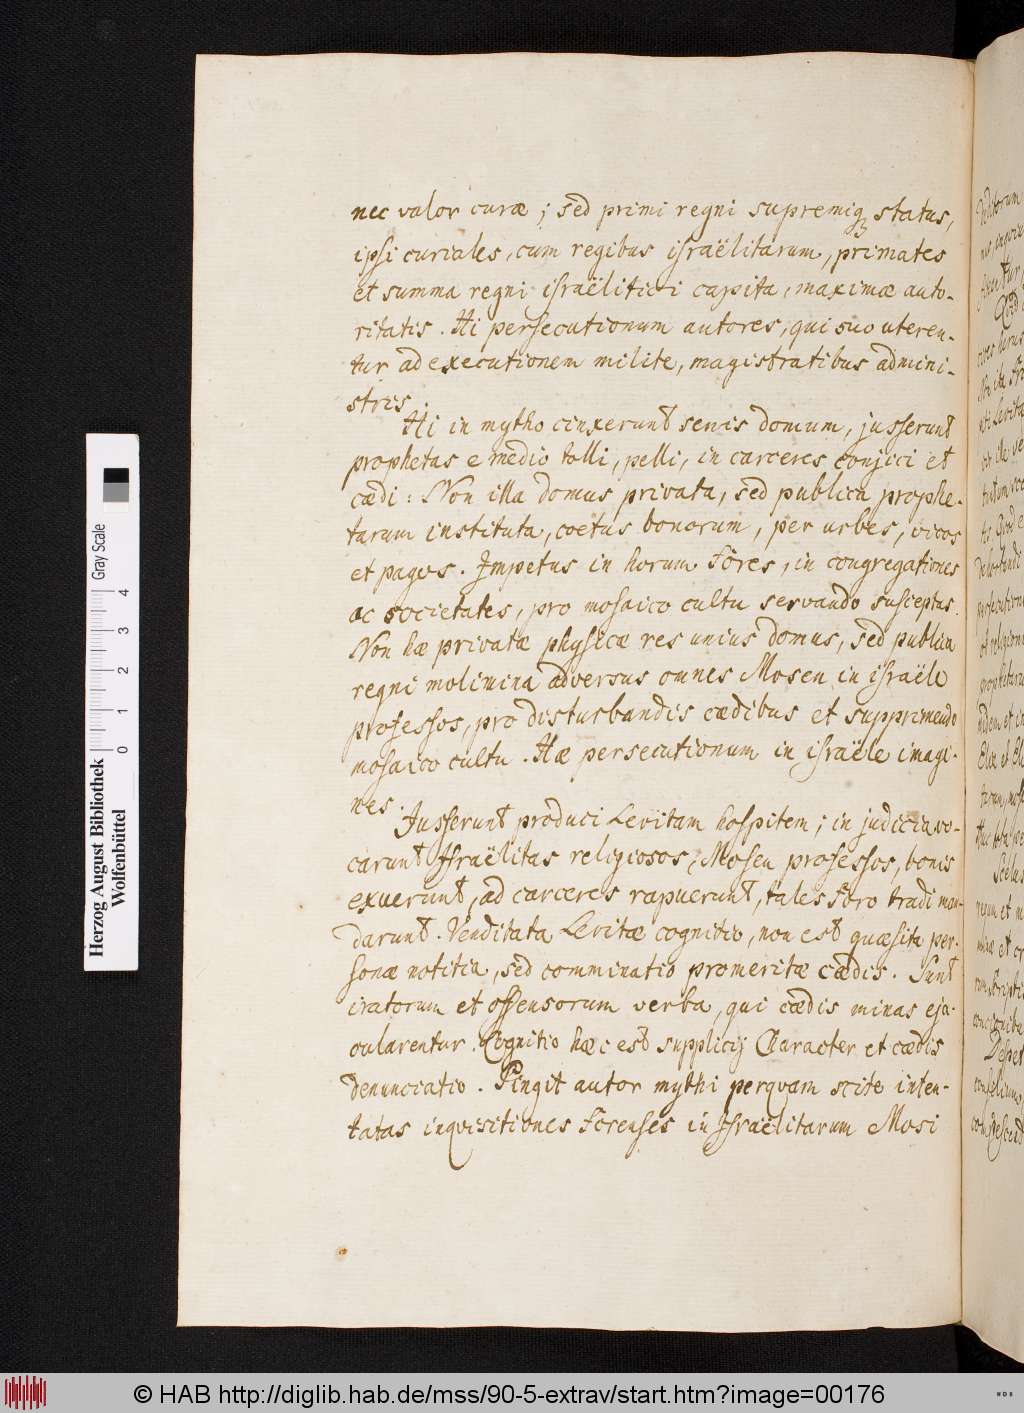 nec valor curæ ; sed primi regni supremiq; status,
ipsi curiales, cum regibus israëlitarum, primates
et summa regni israëlitici capita, maximæ auto-
ritatis. Hi persecutionum autores, qui suo uteren-
tur ad executionem milite, magistratibus admini-
stris.
Hi in mytho cinxerunt senis domum, jusserunt
prophetas e medio tolli, pelli, in carceres conjici et
cædi : Non illa domus privata, sed publica prophe-
tarum instituta, coetus bonorum, per urbes, vicos
et pagos. Impetus in horum fores, in congregationes
ac societates, pro mosaico cultu servando susceptas.
Non hæ privatæ physicæ res unius domus, sed publica
regni molimina adversus omnes Mosen in israële
professos, pro disturbandis cædibus et supprimendo
mosaico cultu. Hæ persecutionum in israële imagi-
nes.
Jusserunt produci Levitam hospitem ; in judicia vo-
carunt Israëlitas religiosos, Mosen professos, bonis
exuerunt, ad carceres rapuerunt, tales foro tradi man-
darunt. Venditata Levitæ cognitio, non est quæsita per-
sonæ notitia, sed comminatio promeritæ cædis. Sunt
iratorum et offensorum verba, qui cædis minas eja-
cularentur. Cognitio hæc est supplicij Character et cædis
denunciatio. Pingit autor mythi perquam scite inten-
tatas inquisitiones forenses in Israëlitarum Mosi
Herzog August Bibliothek
Wolfenbüttel
0 1 2 3 4
Gray Scale
© HAB http://diglib.hab.de/mss/90-5-extrav/start.htm?image=00176